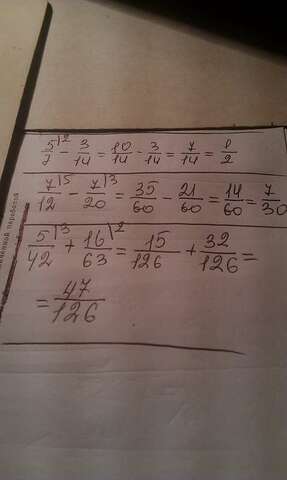 5/7|2 - 3/14 = 10/14 - 3/14 = 7/14 = 1/2
7/12|5 - 7/20|3 = 35/60 - 21/60 = 14/60 = 7/30
5/42|3 + 16/63|2 = 15/126 + 32/126 =
= 47/126